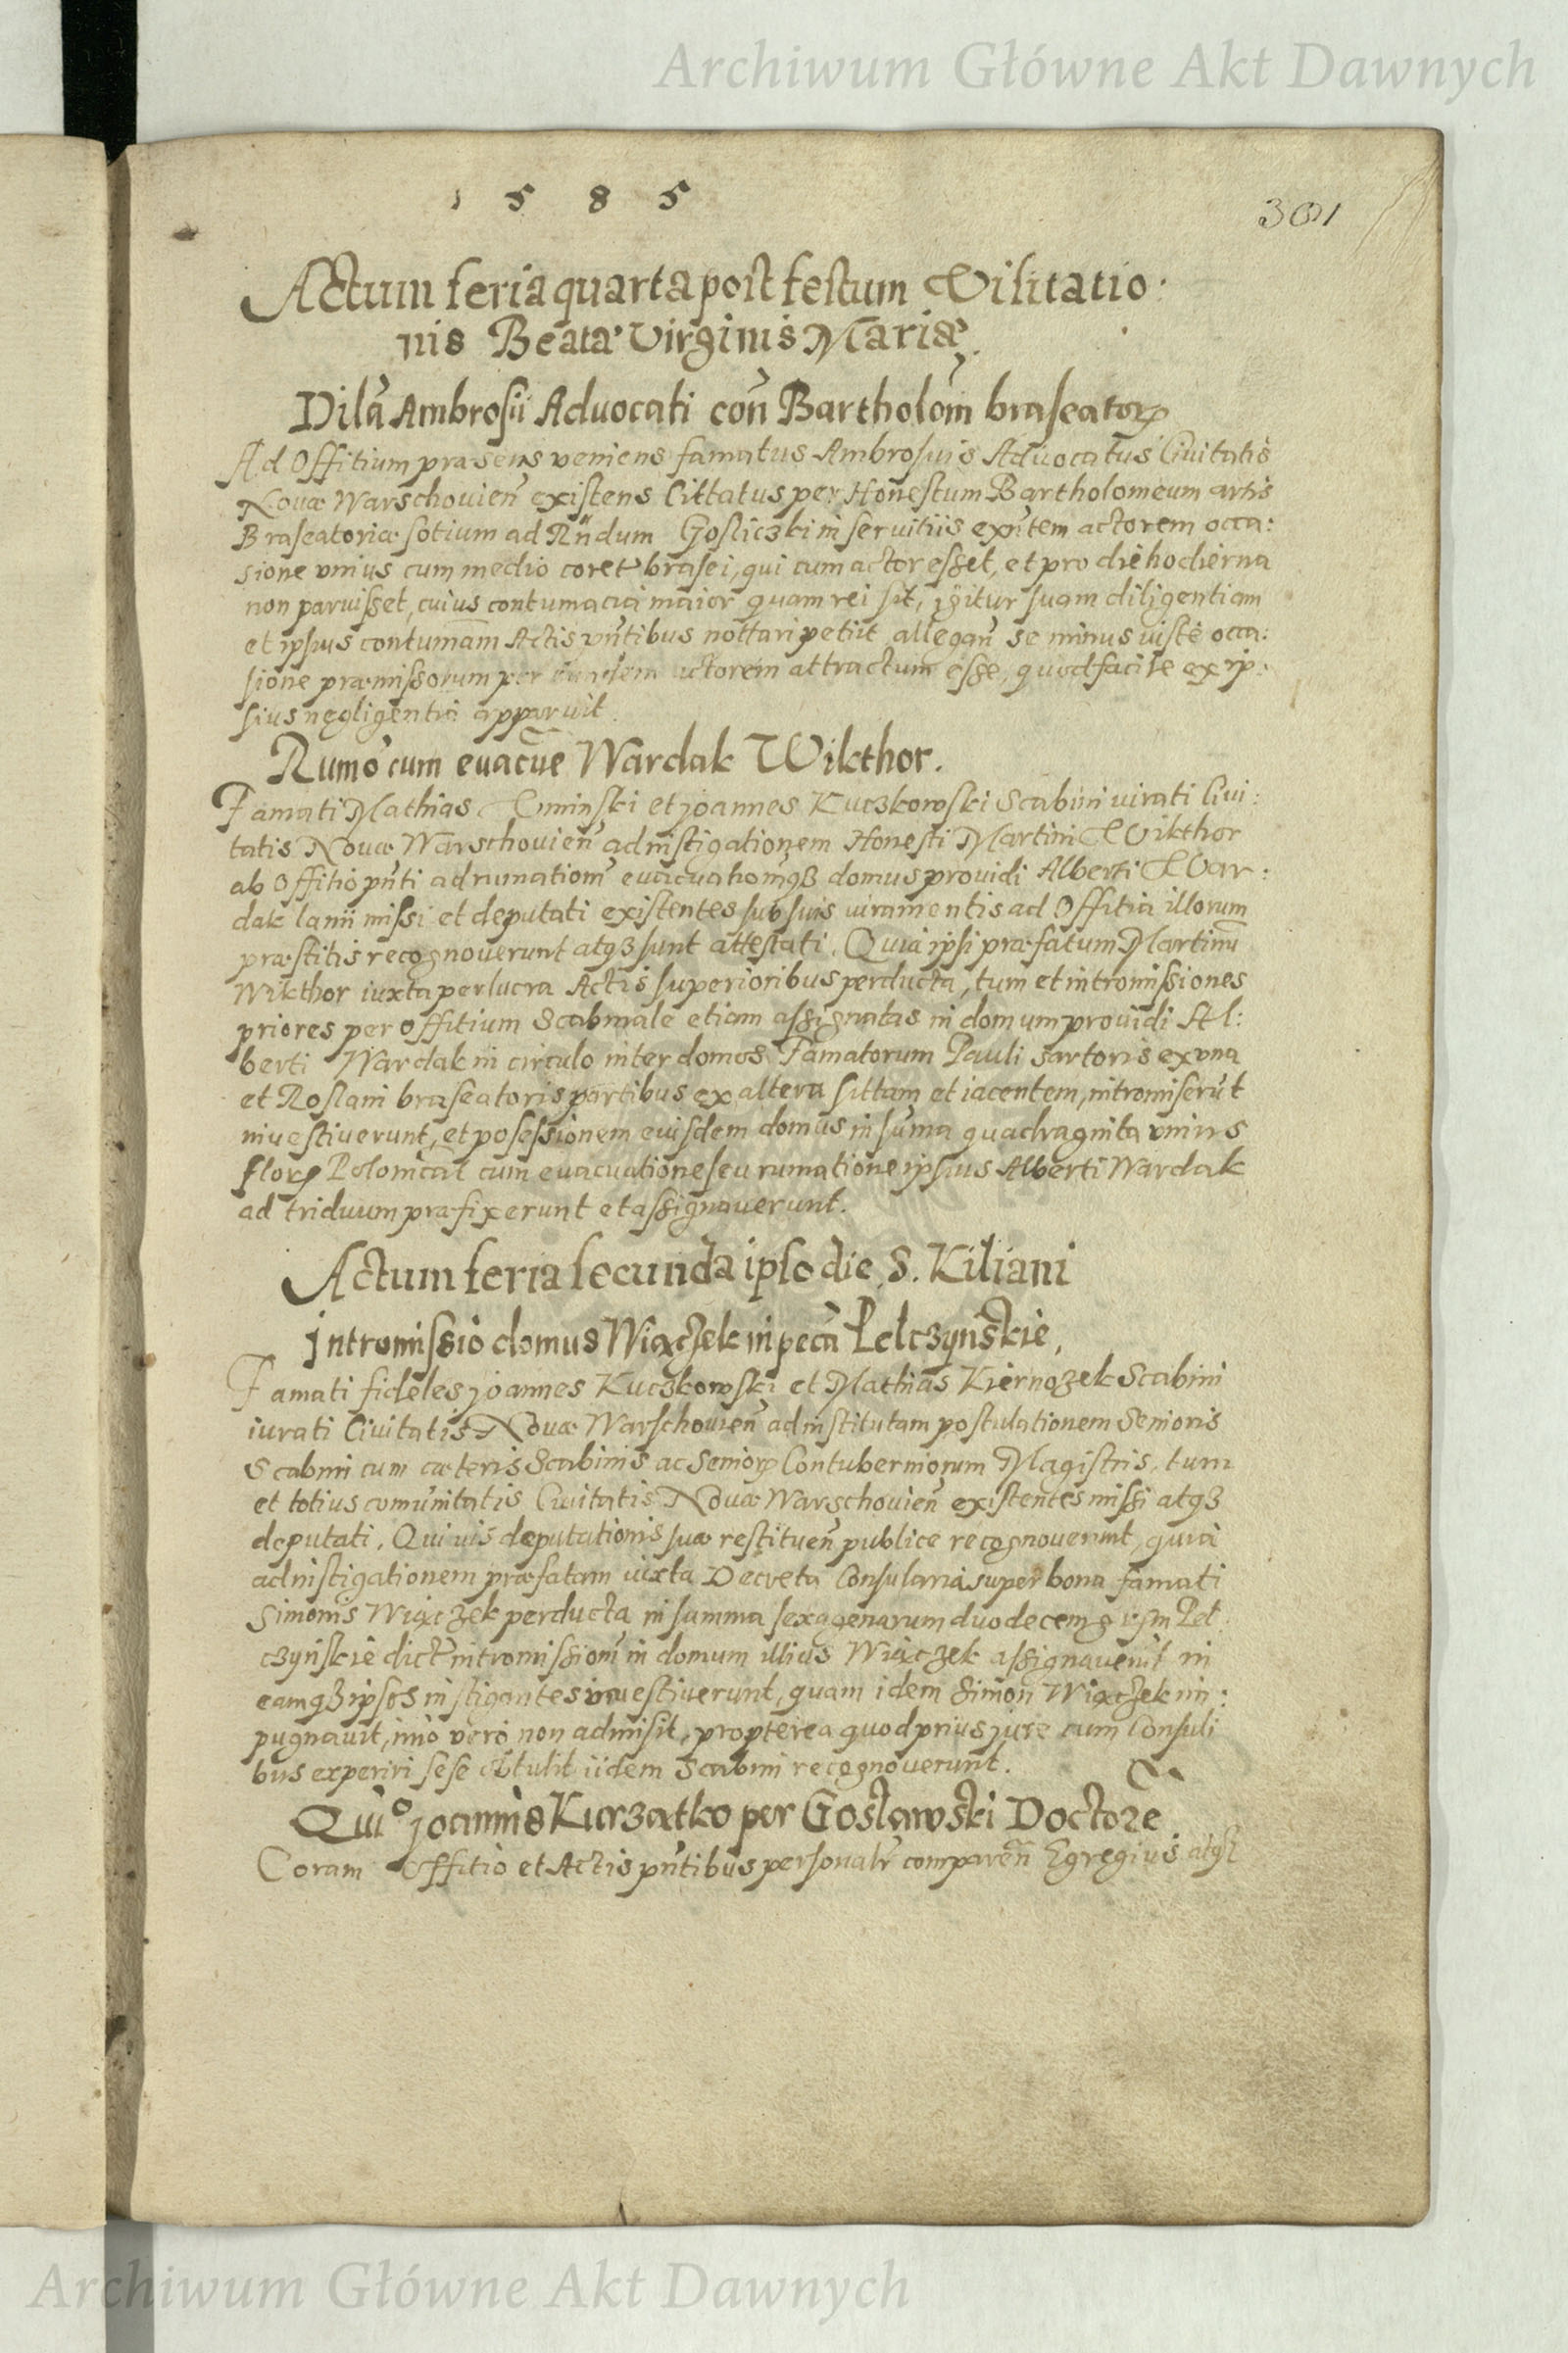 Archiwum Główne Akt Dawnych
1 5 8 5
301
Actum feria quarta post festum Visitatio:
nis Beatæ Virginis Mariæ.
Dilã Ambrosii Advocati coñ Bartholom̃ braseatorꝝ
Ad Offitium præsens veniens famatus Ambrosius Advocatus Civitatis
Novæ Warschovieñ existens Cittatus per Honestum Bartholomeum artis
Braseatoriæ sotium ad Rñdum Gosliczki in servitiis exñtem actorem occa:
sione unius cum medio coret brasei, qui cum actor esset, et pro die hodierna
non paruisset, cuius contumacia maior quam rei sit, igitur suam diligentiam
et ipsius contumam̃ Actis pñtibus nottari petiit allegañ se minus iuste occa:
sione præmissorum per eundem actorem attractum esse, quod facile ex ip:
sius negligentia apparuit.
Rumõ cum evacũe Wardak Wikthor.
Famati Mathias Ciminski et joannes Kuczkowski Scabini iurati Civi:
tatis Novæ Warschovieñ ad instigationem Honesti Martini Wikthor
ab Offitio pñti ad rumationem̃ evacuationemq̃ꝫ domus providi Alberti War:
dak lanii missi et deputati existentes sub suis iuramentis ad Offitia illorum
præstitis recognoverunt atqꝫ sunt attestati. Quia ipsi præfatum Martinũ
Wikthor iuxta perlucra Actis superioribus perducta, tum et intromissiones
priores per Offitium Scabinale etiam assignatas in domum providi Al:
berti Wardak in circulo inter domos Famatorum Pauli sartoris ex una
et Roslani braseatoris partibus ex altera sittam et iacentem, intromiserũt
investiverunt, et posessionem eiusdem domus in sum̃a quadraginta unius
florꝝ Polonical̃ cum evacuatione seu rumatione ipsius Alberti Wardak
ad triduum præfixerunt et assignaverunt.
Actum feria secunda ipso die S. Kiliani
Intromissio domus Wiączek in pecũ Pelczynskie,
Famati fideles joannes Kuczkowski et Mathias Kiernozek Scabini
iurati Civitatis Novæ Warschovieñ ad institutam postulationem Senioris
Scabini cum cæteris Scabinis ac Seniorꝝ Contuberniorum Magistris, tum
et totius comunitatis Civitatis Novæ Warschovieñ existentes missi atqꝫ
deputati. Qui vis deputationis suæ restitueñ publice recognoverunt, quia
ad instigationem præfatam iuxta Decreta Consularia super bona famati
Simonis Wiączek perducta in summa sexagenarum duodecem Pel
czyńskie dict̃ intromissionem̃ in domum illius Wiączek assignaverũt in
eamqꝫ ipsos instigantes investiverunt, quam idem Simon Wiączek im:
pugnavit, imo vero non admisit, propterea quod prius jure cum Consuli
bus experiri sese obtulit iidem Scabini recognoverunt.
Qui° joannis Kurzątko per Gosławski Doctorẽ
Coram Offitio et Actis pñtibus personalr̃ compareñ Egregius atqꝫ
Archiwum Główne Akt Dawnych